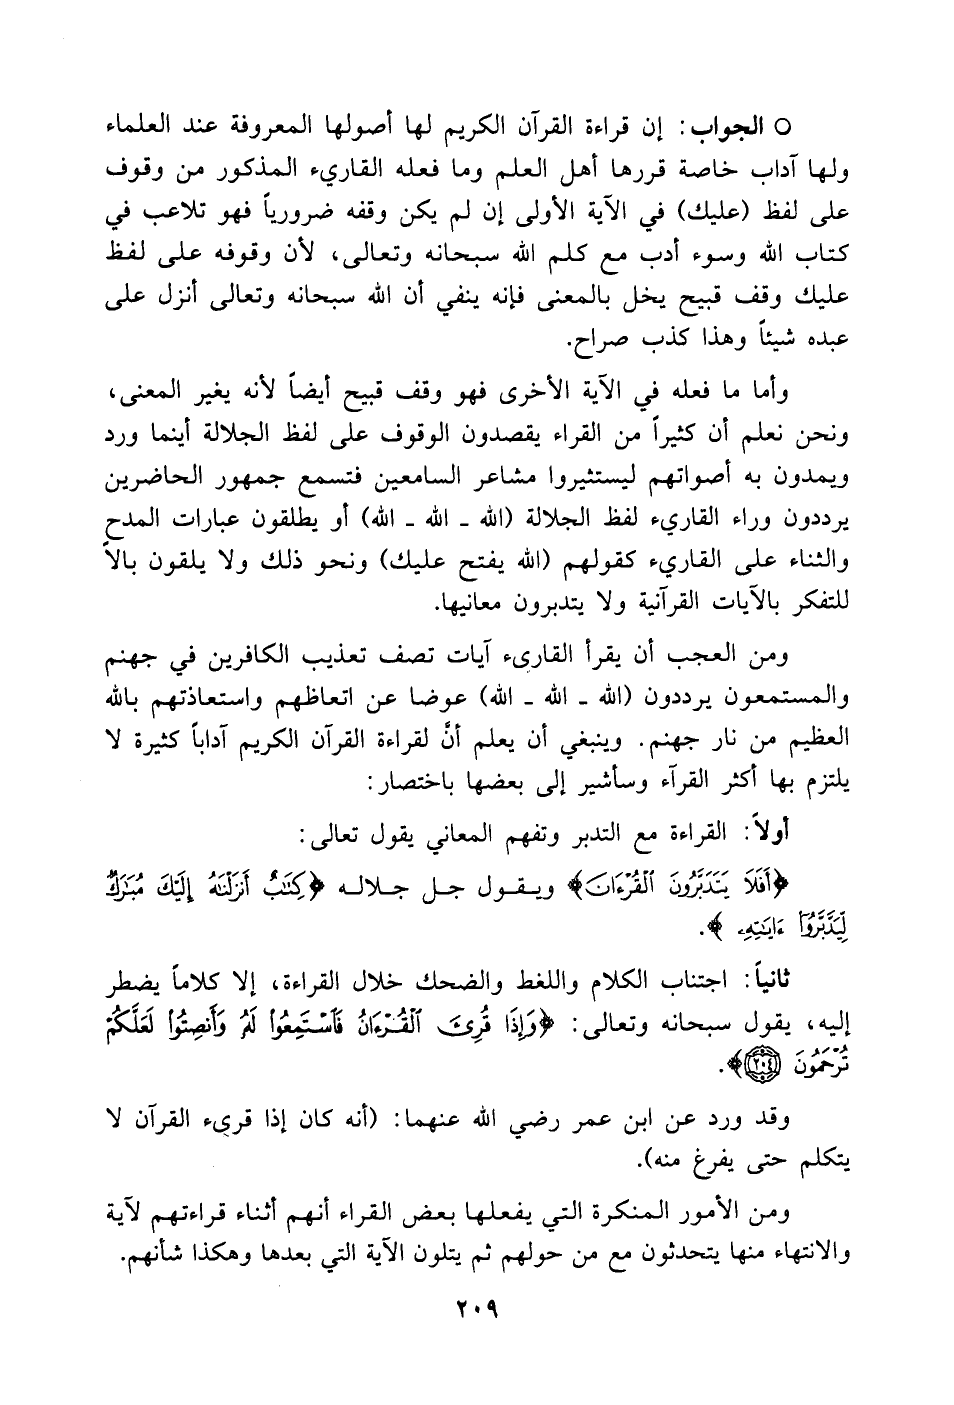 ○ الجواب: إن قراءة القرآن الكريم لها أصولها المعروفة عند العلماء
ولها آداب خاصة قررها أهل العلم وما فعله القاريء المذكور من وقوف
على لفظ (عليك) في الآية الأولى إن لم يكن وقفه ضرورياً فهو تلاعب في
كتاب الله وسوء أدب مع كلم الله سبحانه وتعالى، لأن وقوفه على لفظ
عليك وقف قبيح يخل بالمعنى فإنه ينفي أن الله سبحانه وتعالى أنزل على
عبده شيئاً وهذا كذب صراح.
وأما ما فعله في الآية الأخرى فهو وقف قبيح أيضاً لأنه يغير المعنى،
ونحن نعلم أن كثيراً من القراء يقصدون الوقوف على لفظ الجلالة أينما ورد
ويمدون به أصواتهم ليستثيروا مشاعر السامعين فتسمع جمهور الحاضرين
يرددون وراء القاريء لفظ الجلالة (الله ـ الله ـ الله) أو يطلقون عبارات المدح
والثناء على القاريء كقولهم (الله يفتح عليك) ونحو ذلك ولا يلقون بالاً
للتفكر بالآيات القرآنية ولا يتدبرون معانيها.
ومن العجب أن يقرأ القاريء آيات تصف تعذيب الكافرين في جهنم
والمستمعون يرددون (الله ـ الله ـ الله) عوضا عن اتعاظهم واستعاذتهم بالله
العظيم من نار جهنم. وينبغي أن يعلم أنَّ لقراءة القرآن الكريم آداباً كثيرة لا
يلتزم بها أكثر القرآء وسأشير إلى بعضها باختصار:
أولاً: القراءة مع التدبر وتفهم المعاني يقول تعالى:
﴿أَفَلَا يَتَدَبَّرُونَ ٱلْقُرْءَانَ﴾ ويقول جل جلاله ﴿كِتَٰبٌ أَنزَلْنَٰهُ إِلَيْكَ مُبَٰرَكٌ
لِّيَدَّبَّرُوٓا۟ ءَايَٰتِهِۦ ﴾.
ثانياً: اجتناب الكلام واللغط والضحك خلال القراءة، إلا كلاماً يضطر
إليه، يقول سبحانه وتعالى: ﴿وَإِذَا قُرِئَ ٱلْقُرْءَانُ فَٱسْتَمِعُوا۟ لَهُۥ وَأَنصِتُوا۟ لَعَلَّكُمْ
تُرْحَمُونَ ٢٠٤﴾.
وقد ورد عن ابن عمر رضي الله عنهما: (أنه كان إذا قريء القرآن لا
يتكلم حتى يفرغ منه).
ومن الأمور المنكرة التي يفعلها بعض القراء أنهم أثناء قراءتهم لآية
والانتهاء منها يتحدثون مع من حولهم ثم يتلون الآية التي بعدها وهكذا شأنهم.
٢٠٩